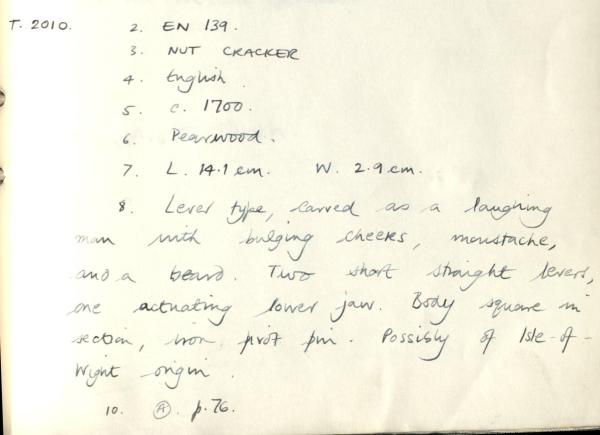 T. 2010. 2. EN 139.
3. NUT CRACKER
4. English
5. c. 1700.
6. Pearwood.
7. L. 14.1 cm. W. 2.9 cm.
8. Lever type, carved as a laughing
man with bulging cheeks, moustache,
and a beard. Two short straight levers,
one actuating lower jaw. Body square in
section, iron pivot pin. Possibly of Isle-of-
Wight origin.
10. Ⓐ. p.76.